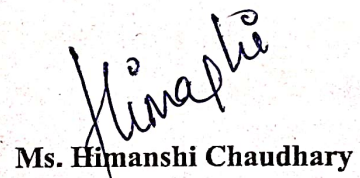 Himanshi
Ms. Himanshi Chaudhary